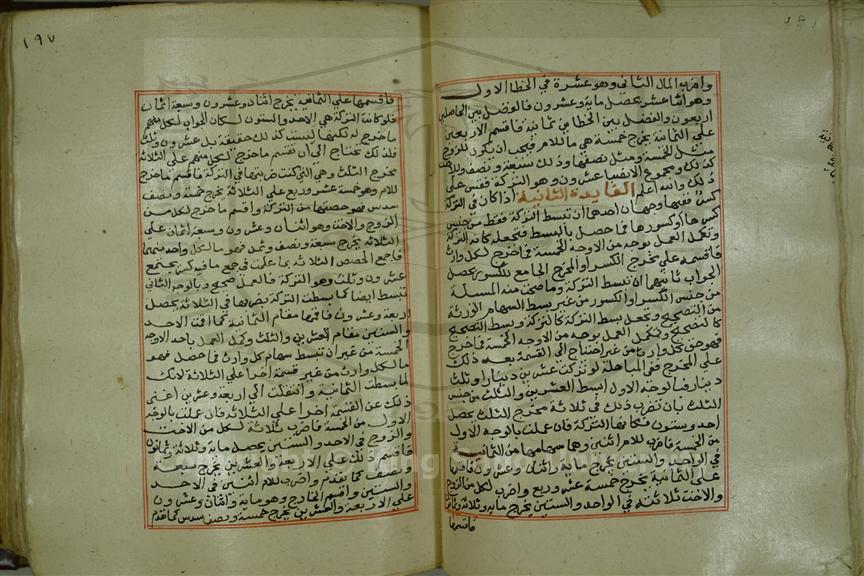 واضرب المال الثاني وهو عشرة في الخطا الاول
وهو اثنا عشر يحصل ماية وعشرون فالفضل بين الحاصلين
اربعون والفضل بين الخطاين ثمانية فاقسم الاربعين
على الثمانية يخرج خمسة هي ما للام فيجب ان يكون للزوج
مثل الخمسة ومثل نصفها وذلك سبعة ونصف وللاخت
كذلك ومجموع الانصبا عشرون وهو التركة فقس على
ذلك والله اعلم الفايدة الثانية اذا كان في التركة
كسر ففيها وجهان احدهما ان تبسط التركة فقط من جنس
كسرها او كسورها فما حصل بالبسط فتجعله كانه التركة
وتكمل العمل بوجه من الاوجه الخمسة فما خرج لكل وارث
فاقسمه على مخرج الكسر او المخرج الجامع للكسور يحصل
الجواب ثانيهما ان تبسط التركة وما صحت منه المسئلة
من جنس الكسر او الكسور من غير بسط السهام الورثة
من التصحيح وتجعل بسط التركة كالتركة وبسط التصحيح
كالتصحيح وتكمل العمل بوجه من الاوجه الخمسة فما خرج
فهو حق كل وارث من غير احتياج الى القسمة بعد ذلك
على المخرج ففي المباهلة لو تركت عشرين دينارا وثلث
دينار فبالوجه الاول ابسط العشرين والثلث من جنس
الثلث بان تضرب ذلك في ثلاثة مخرج الثلث يحصل
احد وستون فكانها التركة فان عملت بالوجه الاول
من الخمسة فاضرب للام اثنين وهما سهامها من الثمانية
في الواحد والستين يخرج ماية واثنان وعشرون فاقسمها
على الثمانية يخرج خمسة عشر وربع واضرب لكل من الزوج
والاخت ثلاثة في الواحد والستين يخرج ماية وثلاثة وثمانون
فاقسمها
١٩٧
فاقسمها على الثمانية يخرج اثنان وعشرون وسبعة اثمان
فلو كانت التركة هي الاحد والستون لكان الجواب لكل منهم
ما خرج له لكنها ليست كذلك حقيقة بل عشرون وثلث
فلذلك تحتاج الى ان تقسم ما خرج لكل منهم على الثلاثة
مخرج الثلث وهي التي كنت ضربتها في التركة فاقسم ما خرج
للام وهو خمسة عشر وربع على الثلاثة يخرج خمسة ونصف
سدس فهو حصتها من التركة واقسم ما خرج لكل من
الزوج والاخت وهو اثنان وعشرون وسبعة اثمان على
الثلاثة يخرج سبعة ونصف وثمن فهو ما لكل واحد منهما
فاجمع الحصص الثلاثة بما علمت في جمع ما فيه كسر يجتمع
عشرون وثلث وهو التركة فالعمل صحيح وبالوجه الثاني
تبسط ايضا كما بسطت التركة بضربها في الثلاثة يحصل
اربعة وعشرون فاقمها مقام الثمانية كما اقمت الاحد
والستين مقام العشرين والثلث وكمل العمل باحد الاوجه
الخمسة من غير ان تبسط سهام كل وارث فما حصل فهو
ما لكل وارث من غير قسمة اخرا على الثلاثة لانك
لما بسطت الثمانية وانتقلت الى اربعة وعشرين اغنى
ذلك عن القسمة اخرا على الثلاثة فان عملت بالوجه
الاول من الخمسة فاضرب ثلاثة لكل من الاخت
والزوج في الاحد والستين يحصل ماية وثلاثة وثمانون
فاقسم ذلك على الاربعة والعشرين يخرج سبعة
ونصف كما تقدم واضرب للام اثنين في الاحد
والستين واقسم الخارج وهو ماية واثنان وعشرون
على الاربعة والعشرين يخرج خمسة ونصف سدس كما تقدم